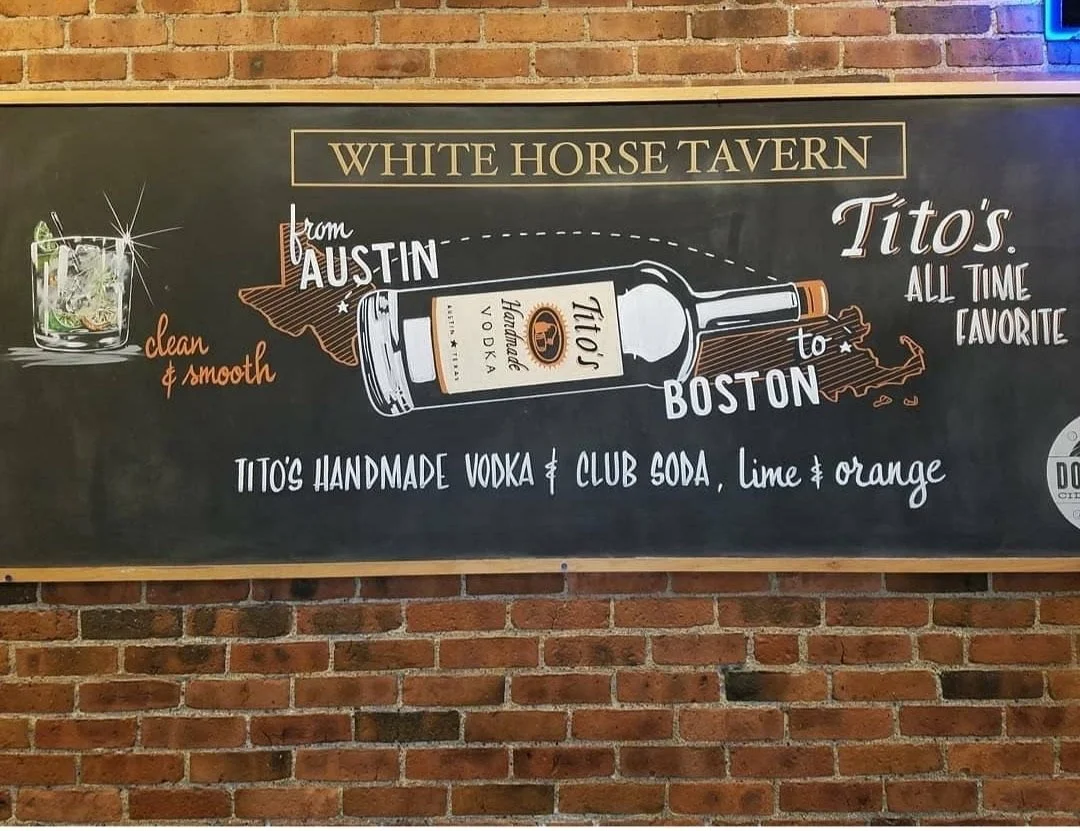 WHITE HORSE TAVERN
from
AUSTIN
Tito's.
ALL TIME
FAVORITE
clean
& smooth
Tito's
Handmade
VODKA
AUSTIN ★ TEXAS
to
BOSTON
TITO'S HANDMADE VODKA & CLUB SODA, lime & orange